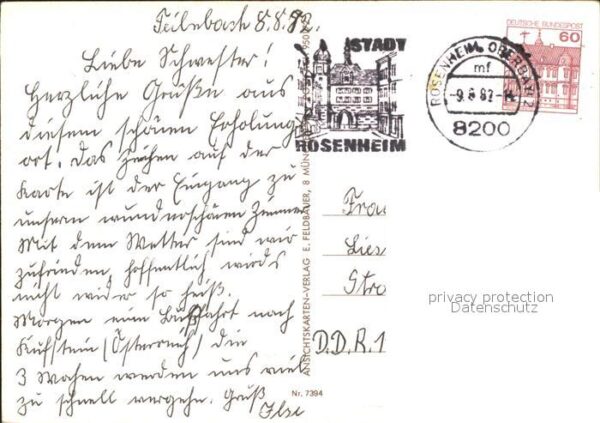 Feilnbach 8.8.82.
Liebe Schwester!
Herzliche Grüße aus
diesem schönen Erholungs
ort. Das zeichen auf der
Karte ist der Eingang zu
unsern wunderschönen Zimmer
Mit dem Wetter sind wir
zufrieden, hoffentlich wirds
nicht wider so heiß.
Morgen eine Busfahrt nach
Kufstein (Österreich) die
3 Wochen werden uns viel
zu schnell vergehn. Gruß
Ilse
STADT
ROSENHEIM
ROSENHEIM, OBERBAY 2
mf
-9.8.82-
8200
DEUTSCHE BUNDESPOST
60
ANSICHTSKARTEN-VERLAG E. FELDBAUER, 8 MÜN
Nr. 7394
Frau
Lies
Stra
D.D.R. 1
privacy protection
Datenschutz